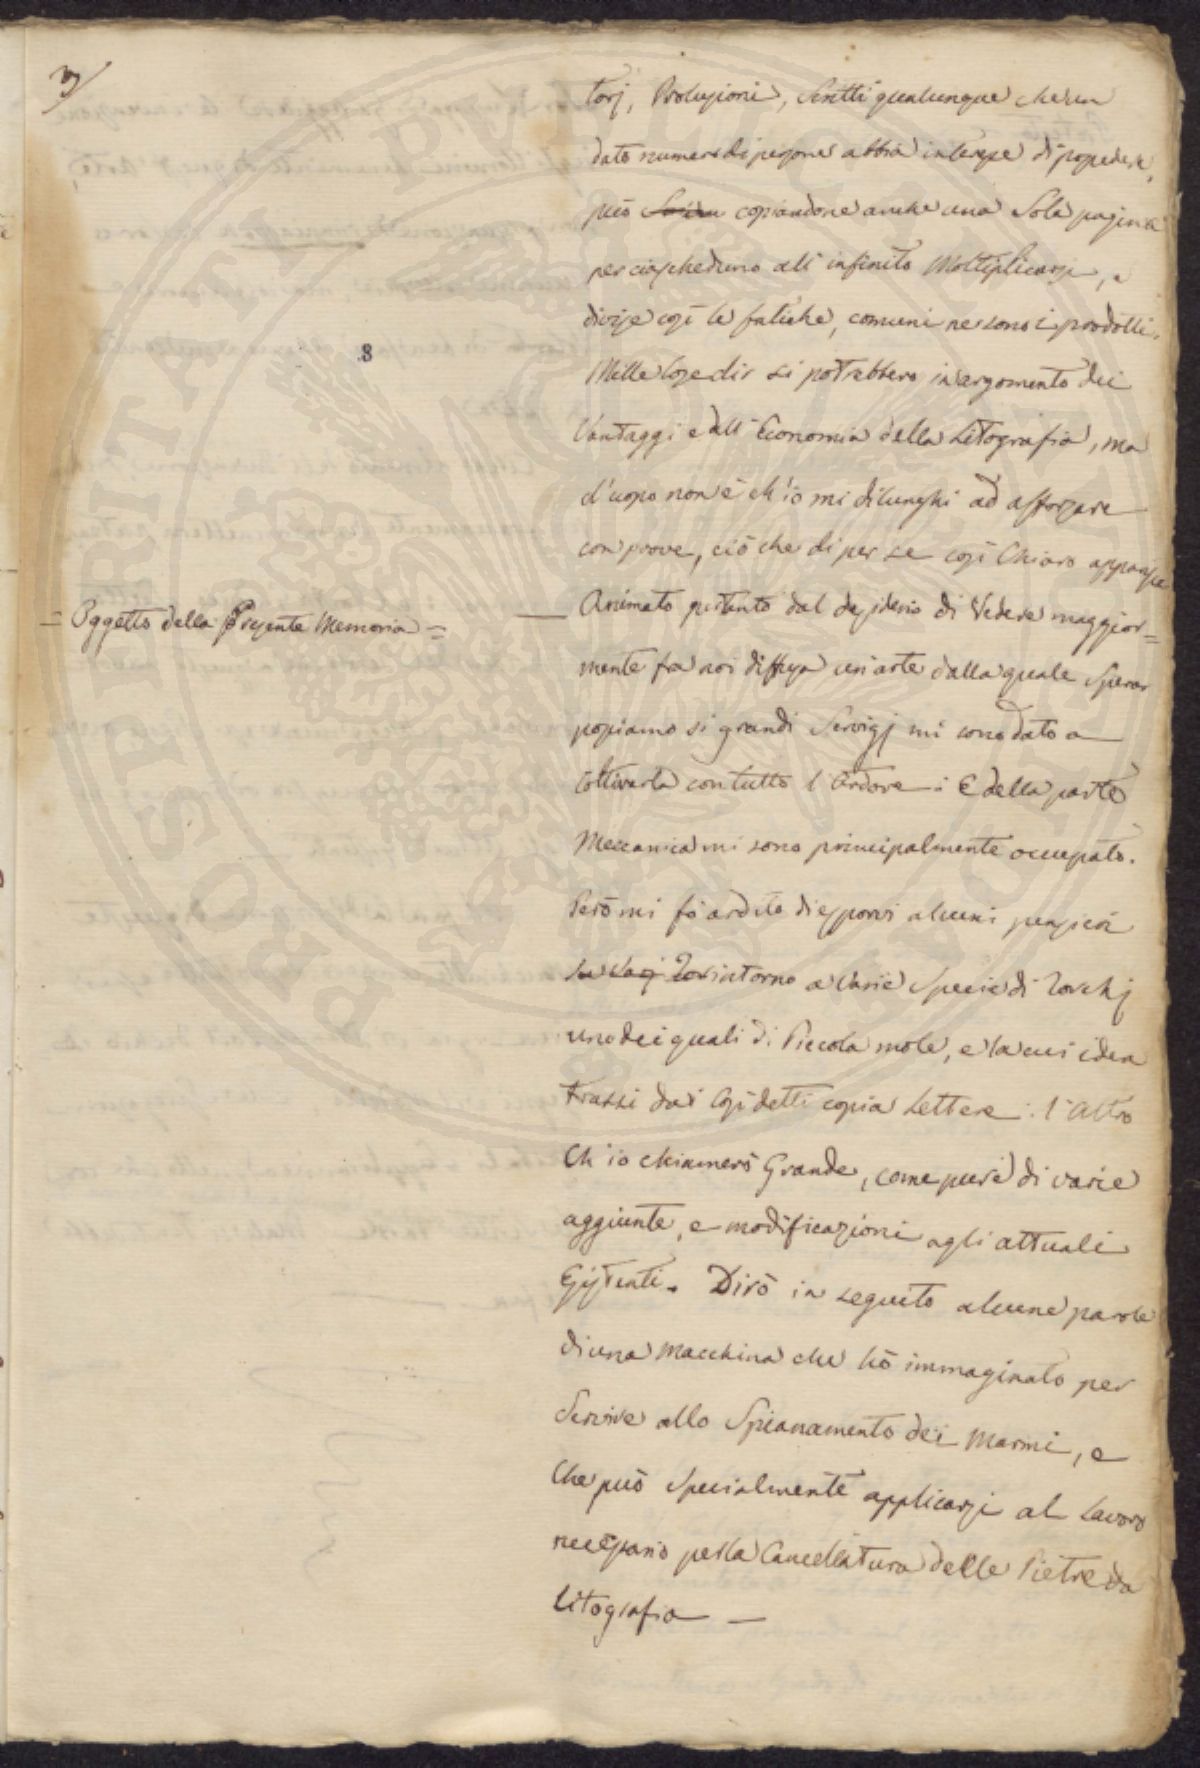 3/
torj, Prolusioni, Scritti qualunque che un
dato numero di persone abbia interesse di possedere,
può copiandone anche una Sola pagina
per ciascheduno all' infinito Moltiplicarsi, e
divise così le fatiche, comuni ne sono i prodotti.
8
Mille Cose dir si potrebbero in argomento dei
Vantaggi e dell' Economia della Litografia, ma
d'uopo non è ch'io mi dilunghi ad afforzare
con prove, ciò che di per se così Chiaro apparisce
= Oggetto della Presente Memoria =
— Animato pertanto dal desiderio di Vedere maggior=
mente fra noi diffusa un'arte dalla quale Sperar
possiamo si grandi Servigj mi sono dato a
Coltivarla con tutto l'Ardore: E della parte
Meccanica mi sono principalmente occupato.
Però mi fò ardito di esporvi alcuni pensieri
intorno a Varie Specie di Torchj
uno dei quali di Piccola mole, e la cui idea
trassi dai Così detti copia Lettere: l'Altro
Ch'io chiamerò Grande, come pure di varie
aggiunte, e modificazioni agli attuali
Esistenti. Dirò in seguito alcune parole
di una Macchina che hò immaginato per
Servire allo Spianamento dei Marmi, e
Che può Specialmente applicarsi al Lavoro
necessario per la Cancellatura delle Pietre da
Litografia —
PROSPERITATI PUBLICAE AUGENDAE